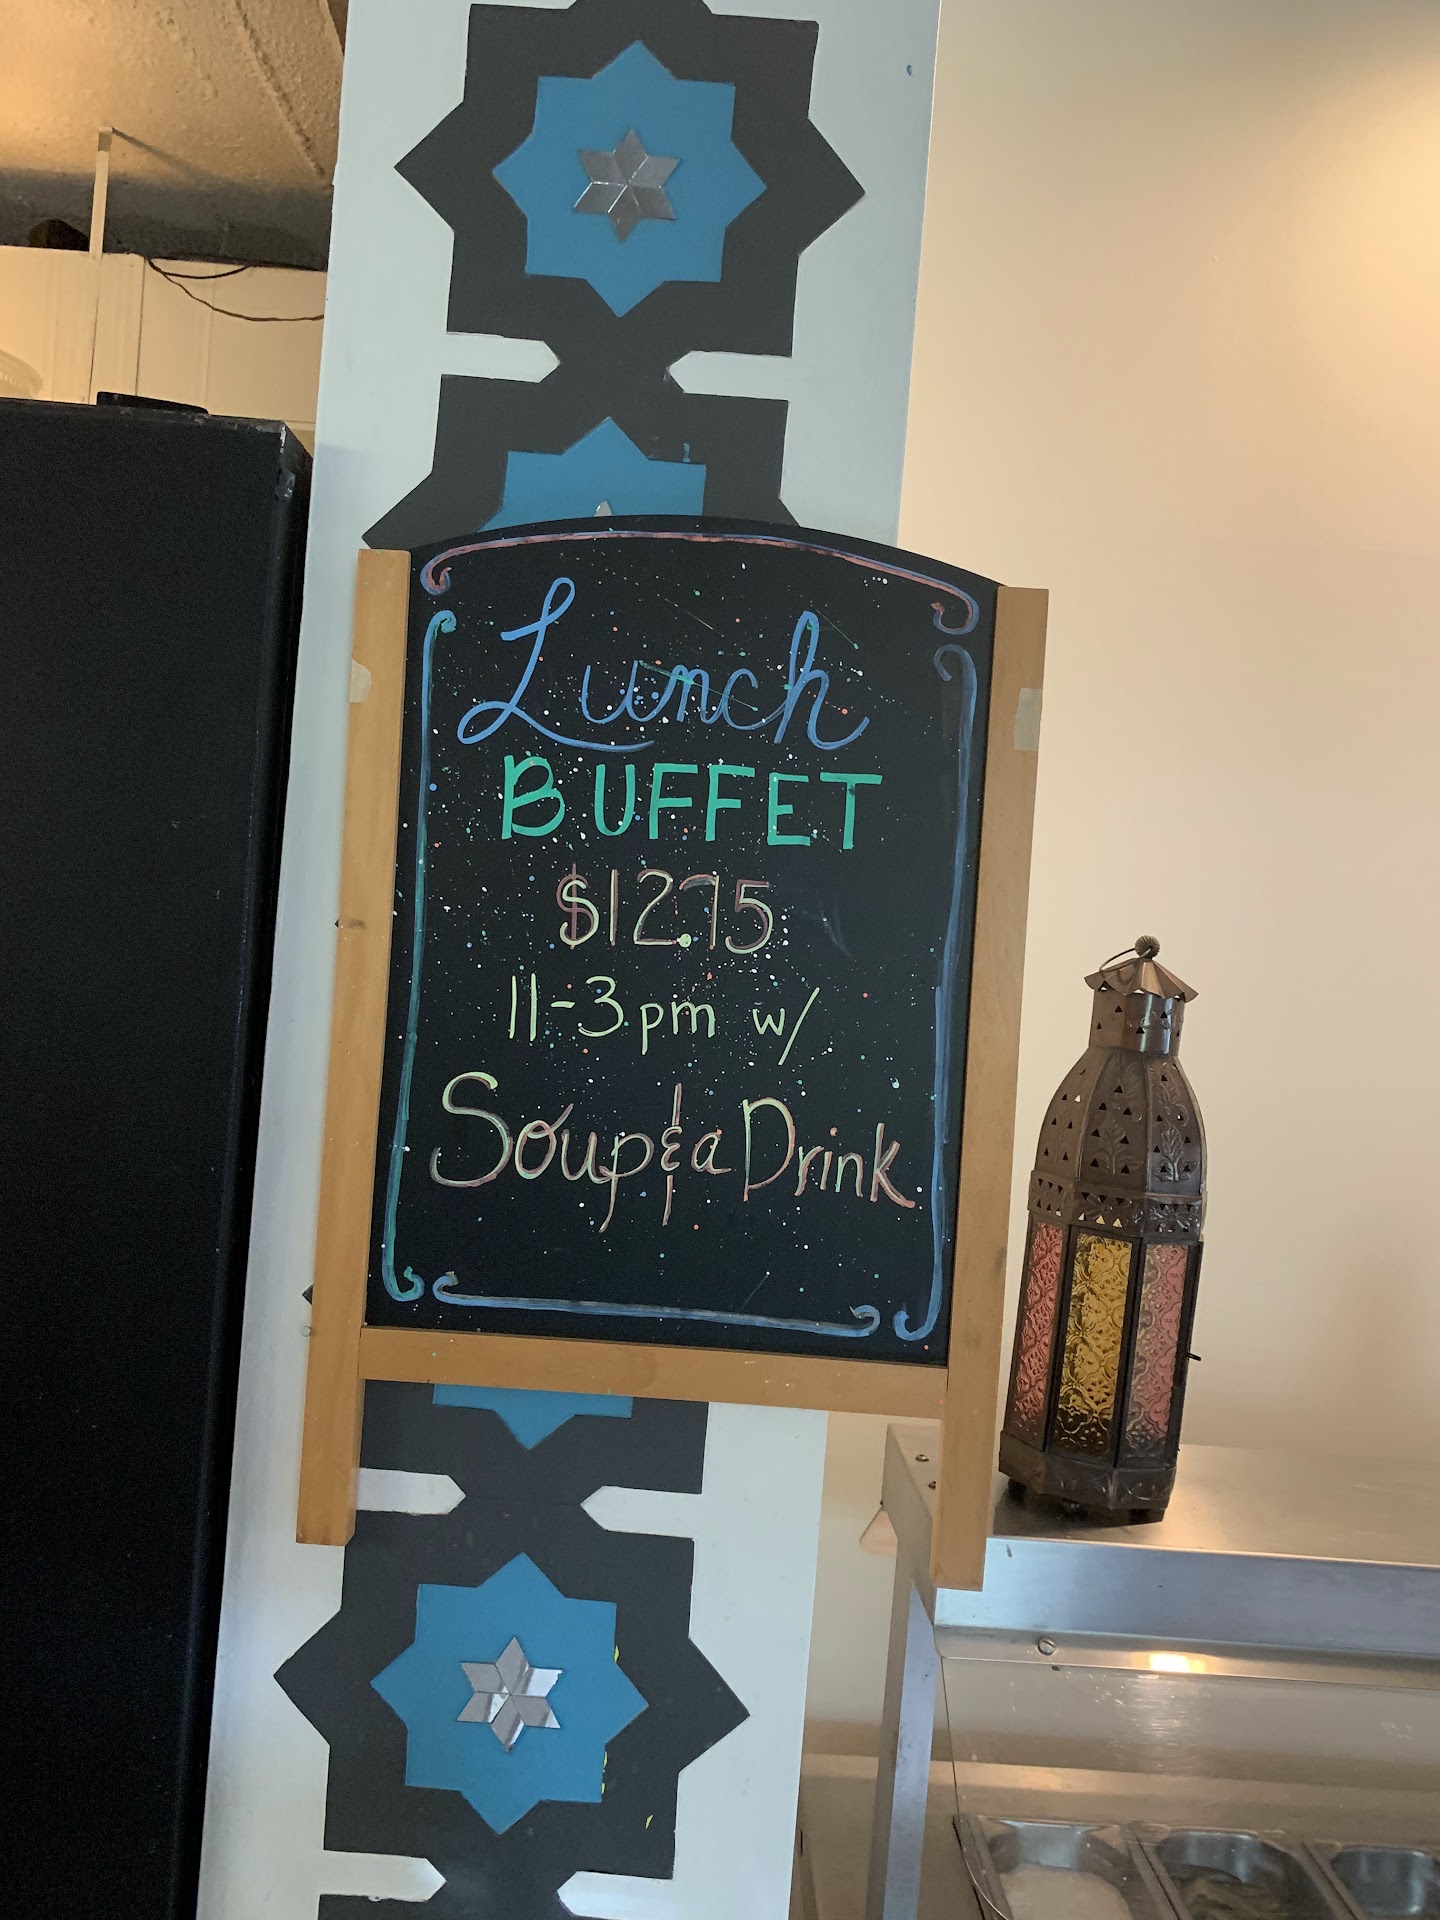 Lunch
BUFFET
$12.75
11-3pm w/
Soup & a Drink